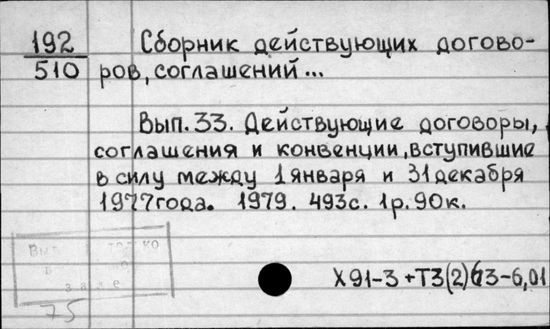 192
510
Сборник действующих догово-
ров, соглашений...
Вып. 33. Действующие договоры,
соглашения и конвенции, вступившие
в силу между 1 января и 31 декабря
1977 года. 1979. 493с. 1р. 90к.
75
Х91-3+Т3(2)63-6,01